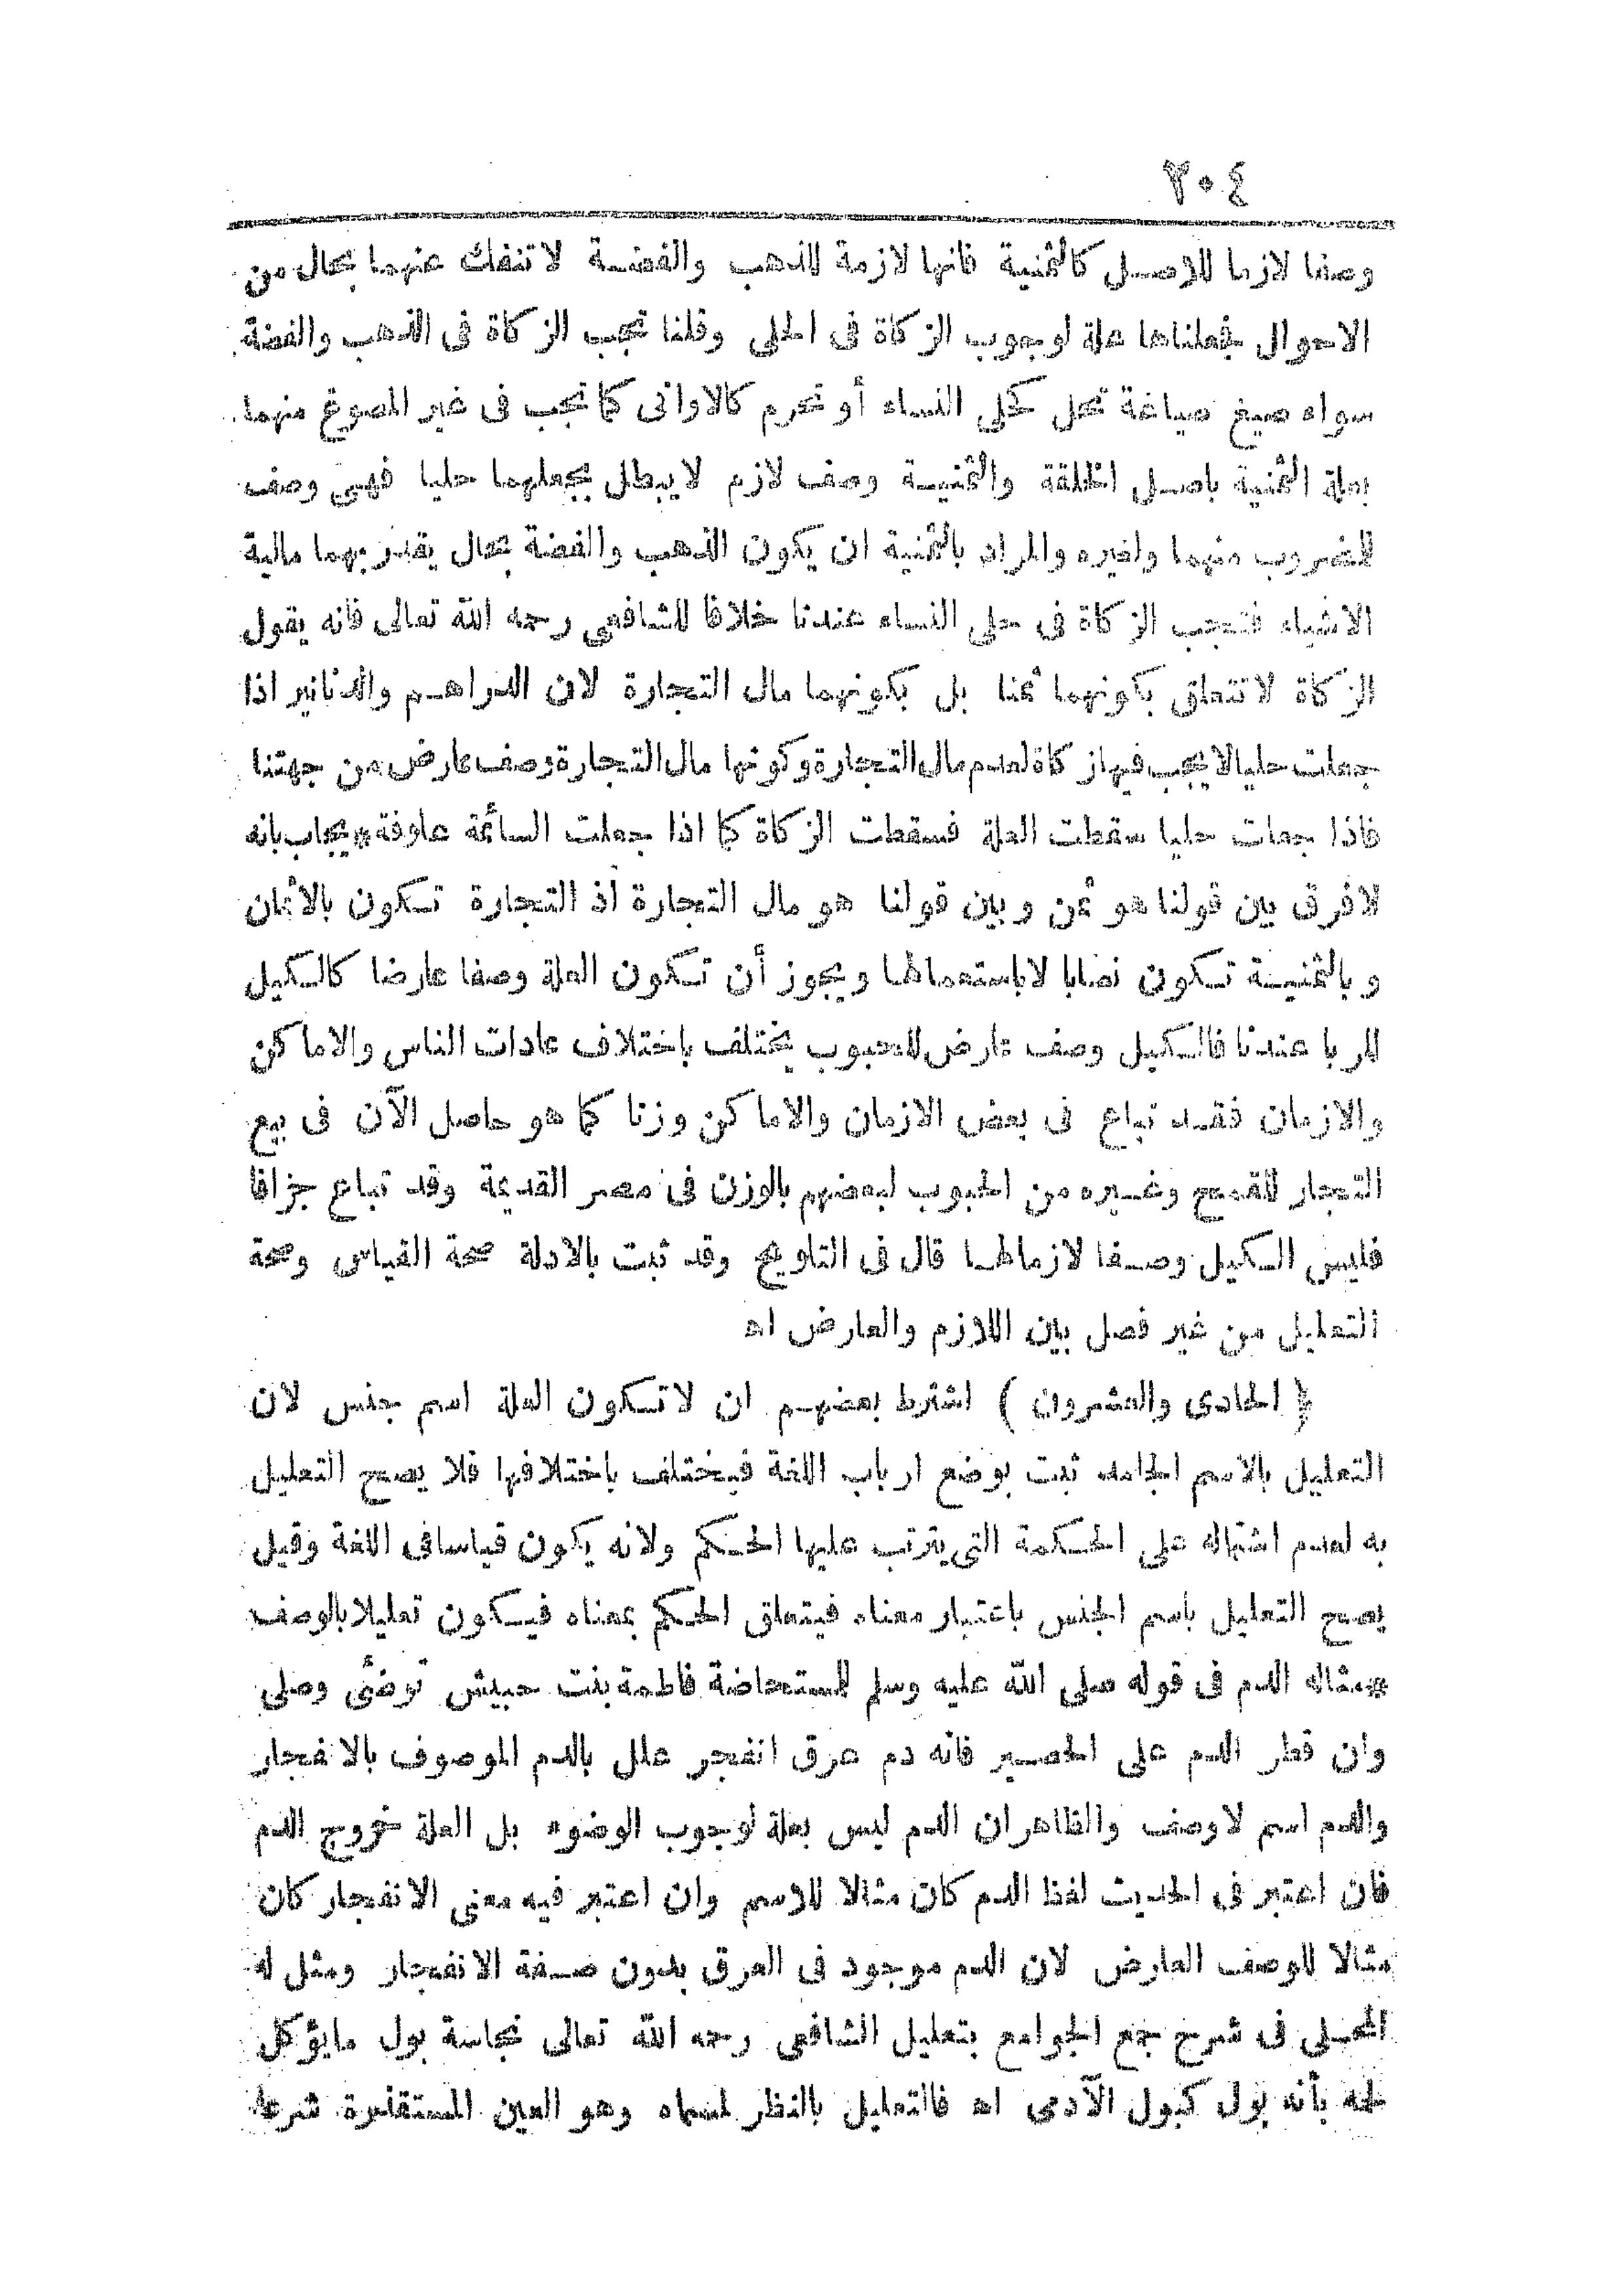 ٢٠٤
وصفا لازما للاصل كالثمنية فانها لازمة للذهب والفضة لا تنفك عنهما بحال من
الاحوال فجعلناها علة لوجوب الزكاة فى الحلى وقلنا تجب الزكاة فى الذهب والفضة
سواء صيغ صياغة تحل كحلى النساء أو تحرم كالاوانى كما تجب فى غير المصوغ منهما
بعلة الثمنية باصل الخلقة والثمنية وصف لازم لا يبطل بجعلهما حليا فهى وصف
للمضروب منهما ولغيره والمراد بالثمنية ان يكون الذهب والفضة بحال يقدر بهما مالية
الاشياء فتجب الزكاة فى حلى النساء عندنا خلافا للشافعى رحمه الله تعالى فانه يقول
الزكاة لا تتعلق بكونهما ثمنا بل بكونهما مال التجارة لان الدراهم والدنانير اذا
جعلت حليا لا يجب فيها زكاة لعدم مال التجارة وكونها مال التجارة وصف عارض من جهتنا
فاذا جعلت حليا سقطت العلة فسقطت الزكاة كما اذا جعلت السائمة علوفة * يجاب بانه
لا فرق بين قولنا هو ثمن وبين قولنا هو مال التجارة اذ التجارة تكون بالاثمان
وبالثمنية تكون نصابا لا باستعمالها ويجوز أن تكون العلة وصفا عارضا كالكيل
للربا عندنا فالكيل وصف عارض للحبوب يختلف باختلاف عادات الناس والاماكن
والازمان فقد تباع فى بعض الازمان والاماكن وزنا كما هو حاصل الآن فى بيع
التجار للقمح وغيره من الحبوب لبعضهم بالوزن فى مصر القديمة وقد تباع جزافا
فليس الكيل وصفا لازما لها قال فى التلويح وقد ثبت بالادلة صحة القياس وصحة
التعليل من غير فصل بين اللازم والعارض اه
﴿ الحادى والعشرون ) اشترط بعضهم ان لا تكون العلة اسم جنس لان
التعليل بالاسم الجامد ثبت بوضع ارباب اللغة فيختلف باختلافها فلا يصح التعليل
به لعدم اشتماله على الحكمة التى يترتب عليها الحكم ولانه يكون قياسا فى اللغة وقيل
يصح التعليل باسم الجنس باعتبار معناه فيتعلق الحكم بمعناه فيكون تعليلا بالوصف
* مثاله الدم فى قوله صلى الله عليه وسلم للمستحاضة فاطمة بنت حبيش توضئى وصلى
وان قطر الدم على الحصير فانه دم عرق انفجر علل بالدم الموصوف بالانفجار
والدم اسم لا وصف والظاهر ان الدم ليس بعلة لوجوب الوضوء بل العلة خروج الدم
فان اعتبر فى الحديث لفظ الدم كان مثالا للاسم وان اعتبر فيه معنى الانفجار كان
مثالا للوصف العارض لان الدم موجود فى العرق بدون صفة الانفجار ومثل له
المحلى فى شرح جمع الجوامع بتعليل الشافعى رحمه الله تعالى نجاسة بول مايؤكل
لحمه بأنه بول كبول الآدمى اه فالتعليل بالنظر لمسماه وهو العين المستقذرة شرعا